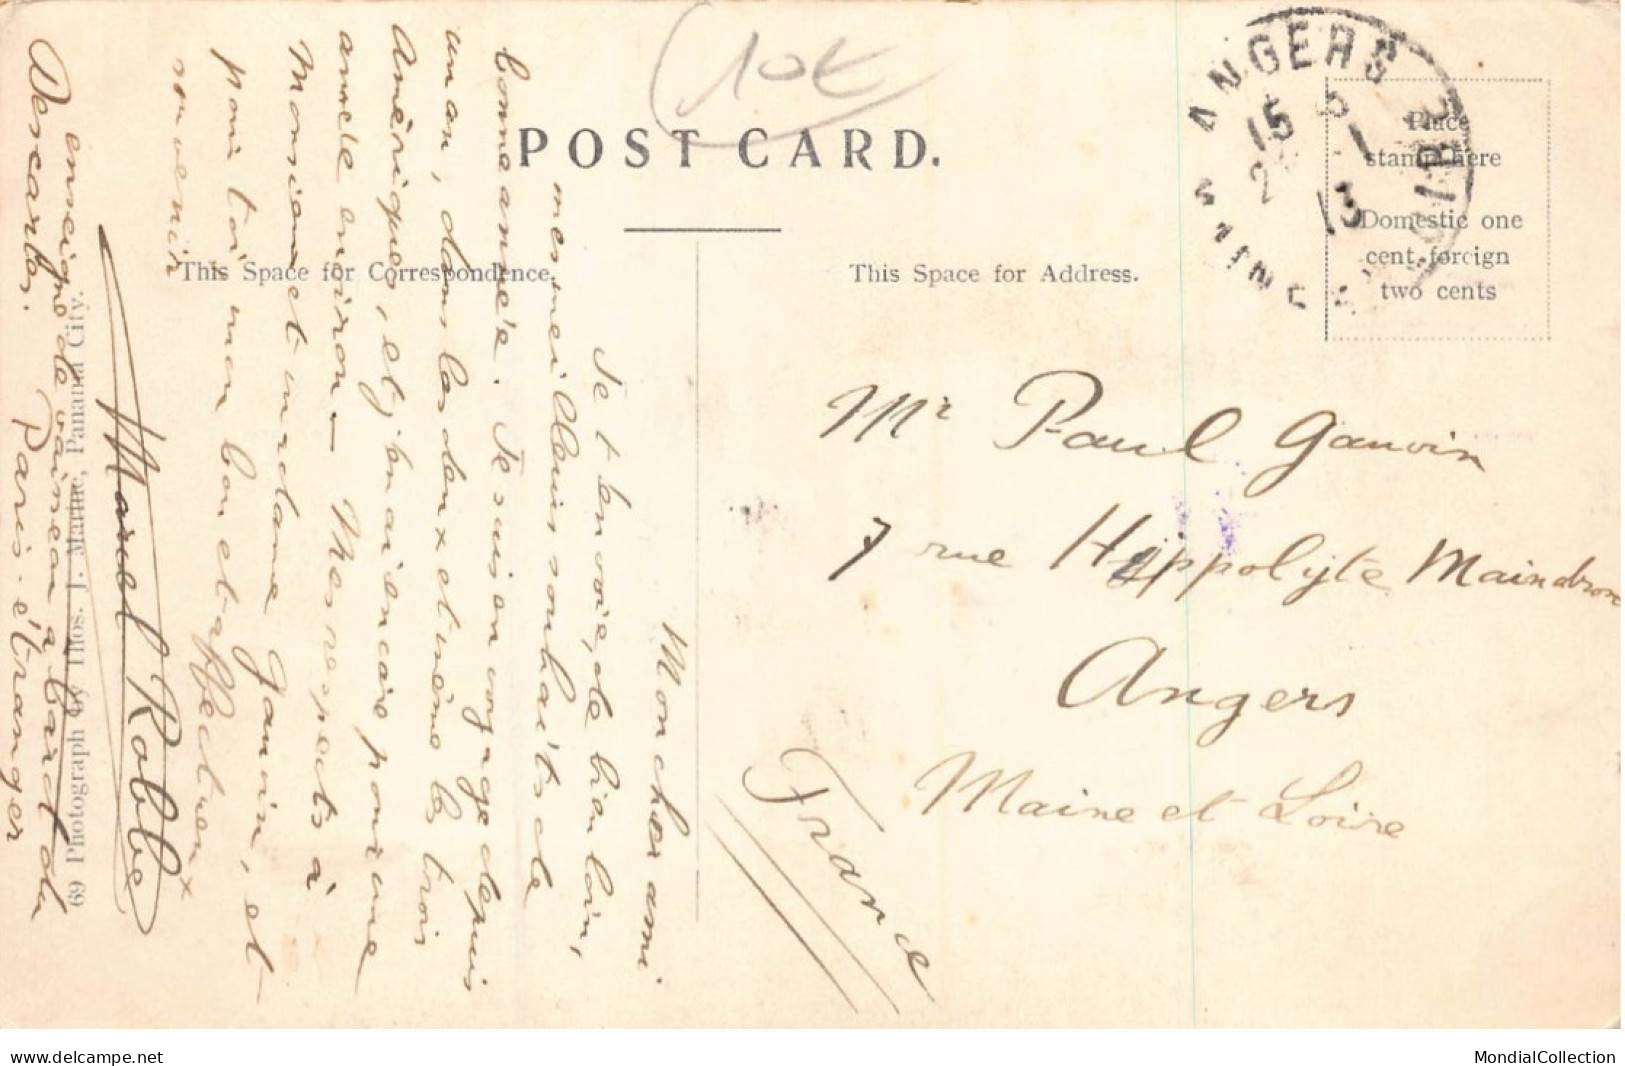 10€
POST CARD.
This Space for Correspondence.
This Space for Address.
Place
stamp here
Domestic one
cent, foreign
two cents
ANGERS
15 5
2 1
13
Mon cher ami
Je t'envoie, de bien loin,
mes meilleurs souhaits de
bonne année. Je suis en voyage depuis
un an, dans les deux et même les trois
Amériques, et j'en ai encore pour une
année environ — Mes respects à
Monsieur et madame Gauvin, et
pour toi mon bon et affectueux
souvenir
Marcel Robbe
enseigne de vaisseau à bord du
Descartes. Paris. étranger
69 Photograph by Thos. J. Marine, Panama City.
Mr Paul Gauvin
7 rue Hippolyte Maindron
Angers
Maine et Loire
France
www.delcampe.net
MondialCollection